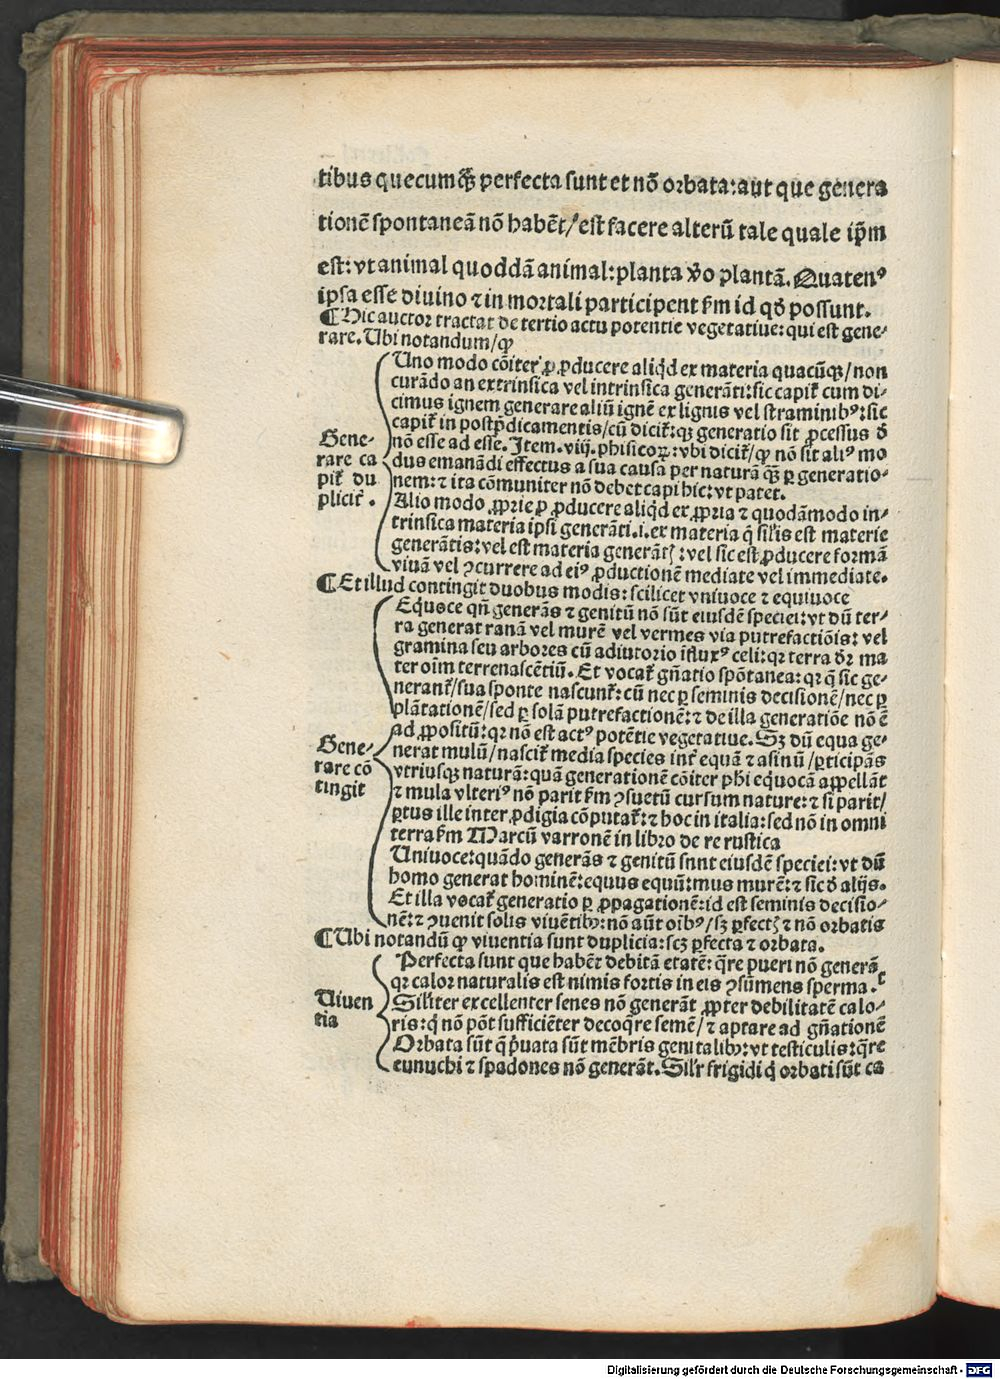 tibus quecumqꝫ perfecta sunt et nō orbata: aut que genera
tionē spontaneā nō habēt/ est facere alterū tale quale ip̄m
est: vt animal quoddā animal: planta v̉o plantā. Quatenꝰ
ipsa esse diuino ⁊ in mortali participent ẜm id qd̉ possunt.
¶ Hic auctor tractat de tertio actu potentie vegetatiue: qui est gene-
rare. Ubi notandum/ ꝙ
Gene-
rare ca
pit̉ du
plicit̉.
Uno modo cōiter ꝓ ꝓducere aliqd̉ ex materia quacūqꝫ/ non
curādo an extrinsica vel intrinsica generāti: sic capit̉ cum di-
cimus ignem generare aliū ignē ex lignis vel straminibꝰ: sic
capit̉ in postp̄dicamentis/ cū dicit̉: qꝫ generatio sit ꝓcessus d̉
nō esse ad esse. Item .viij. phisicoꝝ: vbi dicit̉/ ꝙ nō sit aliꝰ mo
dus emanādi effectus a sua causa per naturā qꝫ̄ ꝑ generatio-
nem: ⁊ ita cōmuniter nō debet capi hic: vt patet.
Alio modo ꝓprie ꝓ ꝓducere aliqd̉ ex ꝓpria ⁊ quodāmodo in-
trinsica materia ipsi generāti .i. ex materia q̄ sil̉is est materie
generātis: vel est materia generātꝭ: vel sic est ꝓducere formā
viuā vel ꝯcurrere ad eiꝰ ꝓductionē mediate vel immediate.
¶ Et illud contingit duobus modis: scilicet vniuoce ⁊ equiuoce
Gene-
rare cō
tingit
Equoce qn̄ generās ⁊ genitū nō sūt eiusdē speciei: vt dū ter-
ra generat ranā vel murē vel vermes via putrefactiōis: vel
gramina seu arbores cū adiutorio īfluxꝰ celi: qꝛ terra dr̄ ma
ter oīm terrenascētiū. Et vocat̉ gn̄atio spōtanea: qꝛ q̄ sic ge-
nerant̉/ sua sponte nascunt̉: cū nec ꝑ seminis decisionē/ nec ꝑ
plātationē/ sed ꝑ solā putrefactionē: ⁊ de illa generatiōe nō ē
ad ꝓpositū: qꝛ nō est actꝰ potētie vegetatiue. Sꝫ dū equa ge-
nerat mulū/ nascit̉ media species int̉ equā ⁊ asinū/ ꝑticipās
vtriusqꝫ naturā: quā generationē cōiter ph̄i equocā appellāt
⁊ mula vlteriꝰ nō parit ẜm ꝯsuetū cursum nature: ⁊ si parit/
ꝑtus ille inter ꝓdigia cōputat̉: ⁊ hoc in italia: sed nō in omni
terra ẜm Marcū varronē in libro de re rustica
Uniuoce: quādo generās ⁊ genitū snnt eiusdē speciei: vt dū
homo generat hominē: equus equū: mus murē: ⁊ sic d̉ alijs.
Et illa vocat̉ generatio ꝑ ꝓpagationē: id est seminis decisio-
nē: ⁊ ꝯuenit solis viuētibꝫ: nō aūt oībꝰ/ sꝫ ꝑfectꝭ ⁊ nō orbatis
¶ Ubi notandū ꝙ viuentia sunt duplicia: scꝫ ꝑfecta ⁊ orbata.
Uiuen
tia
Perfecta sunt que habēt debitā etatē: q̄re pueri nō generāt
qꝛ calor naturalis est nimis fortis in eis ꝯsūmens sperma.
Sil̉iter excellenter senes nō generāt ꝓpter debilitatē calo-
ris: q̇ nō pōt sufficiēter decoq̄re semē/ ⁊ aptare ad gn̄ationē
Orbata sūt q̄ p̉uata sūt mēbris genitalibꝫ: vt testiculis: q̄re
eunuchi ⁊ spadones nō generāt. Sil̉r frigidi q̇ orbati sūt ca
Digitalisierung gefördert durch die Deutsche Forschungsgemeinschaft - DFG